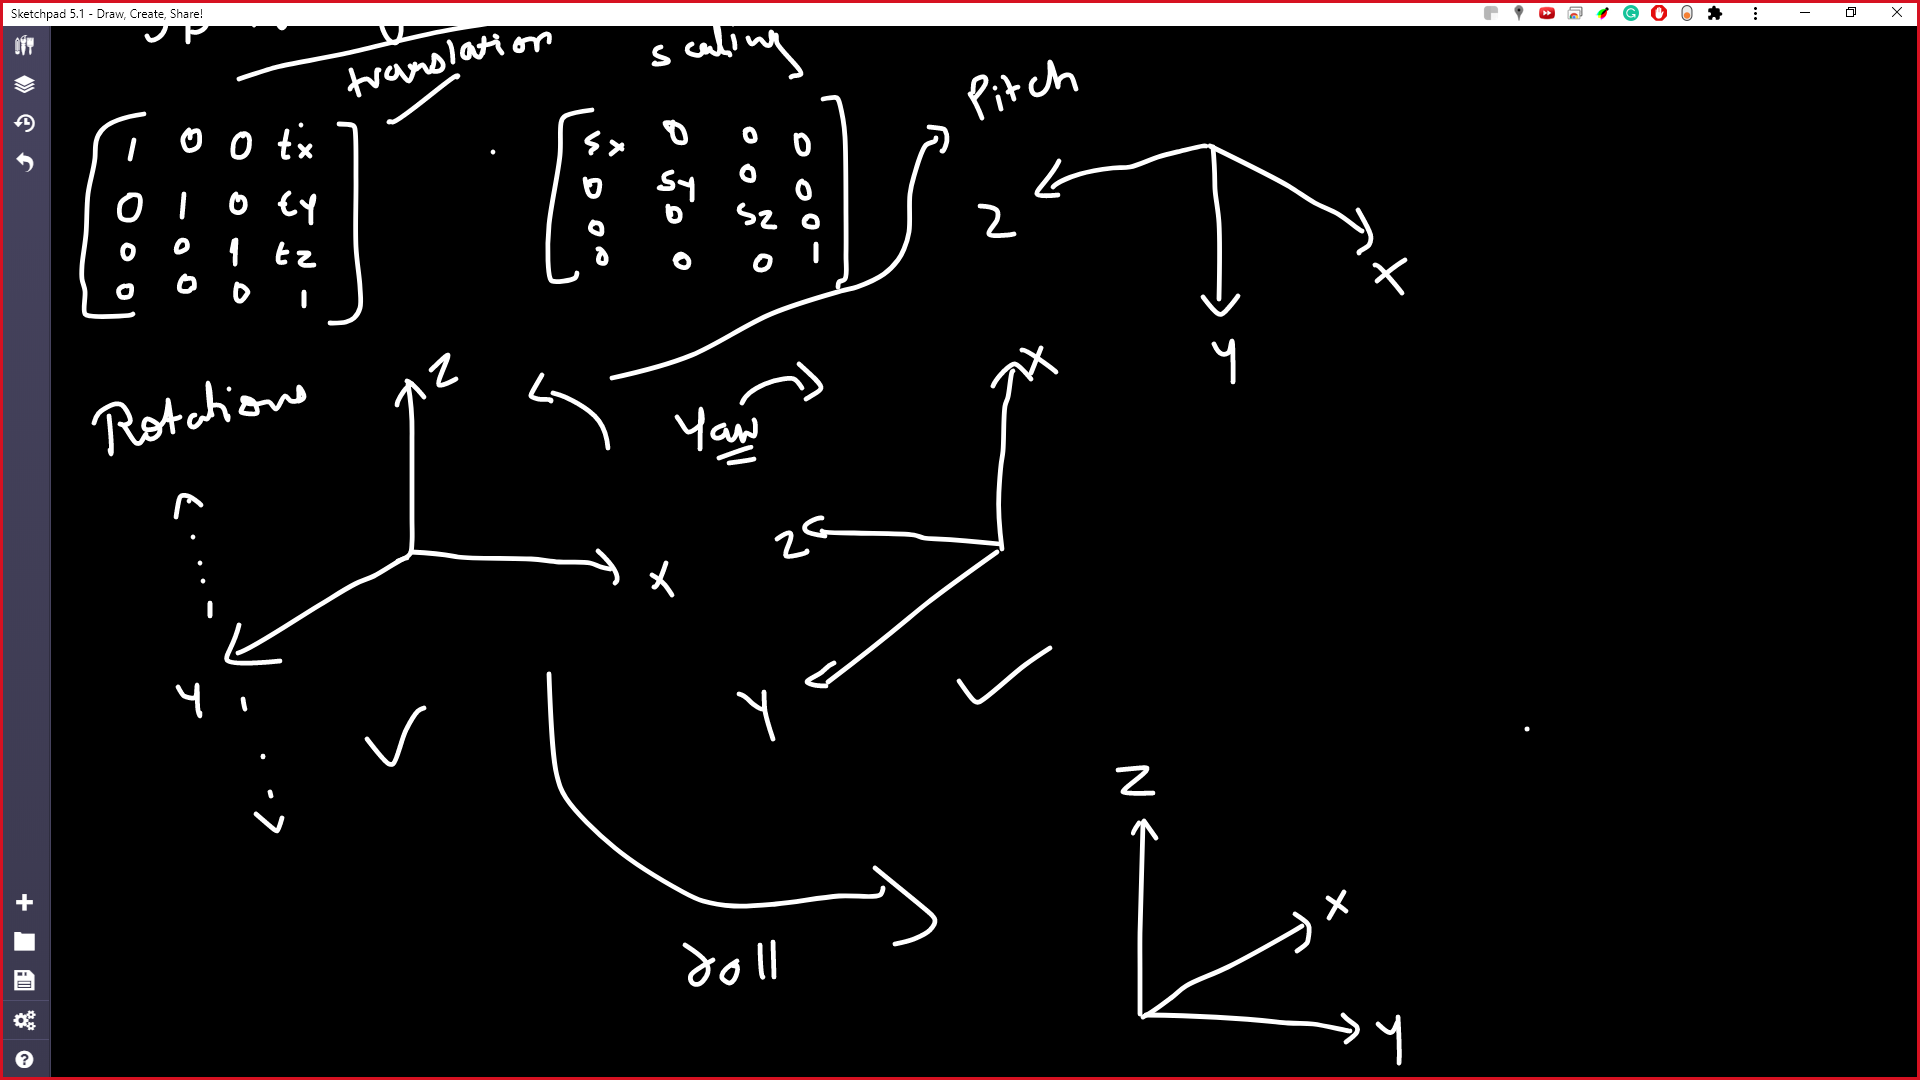 Sketchpad 5.1 - Draw, Create, Share!
translation
scaling
Pitch
1 0 0 tx
0 1 0 ty
0 0 1 tz
0 0 0 1
sx 0 0 0
0 sy 0 0
0 0 sz 0
0 0 0 1
Z
X
Y
Rotations
Z
X
Y
Yaw
X
Z
Y
roll
Z
X
Y